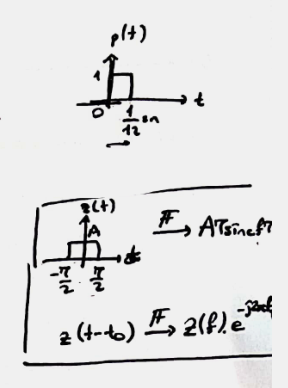 p(t)
1
0 1/12 sn t
z(t)
A
-T/2 T/2 t
F → Aτsincfτ
z(t-t₀) F → z(f).e^-j2πf